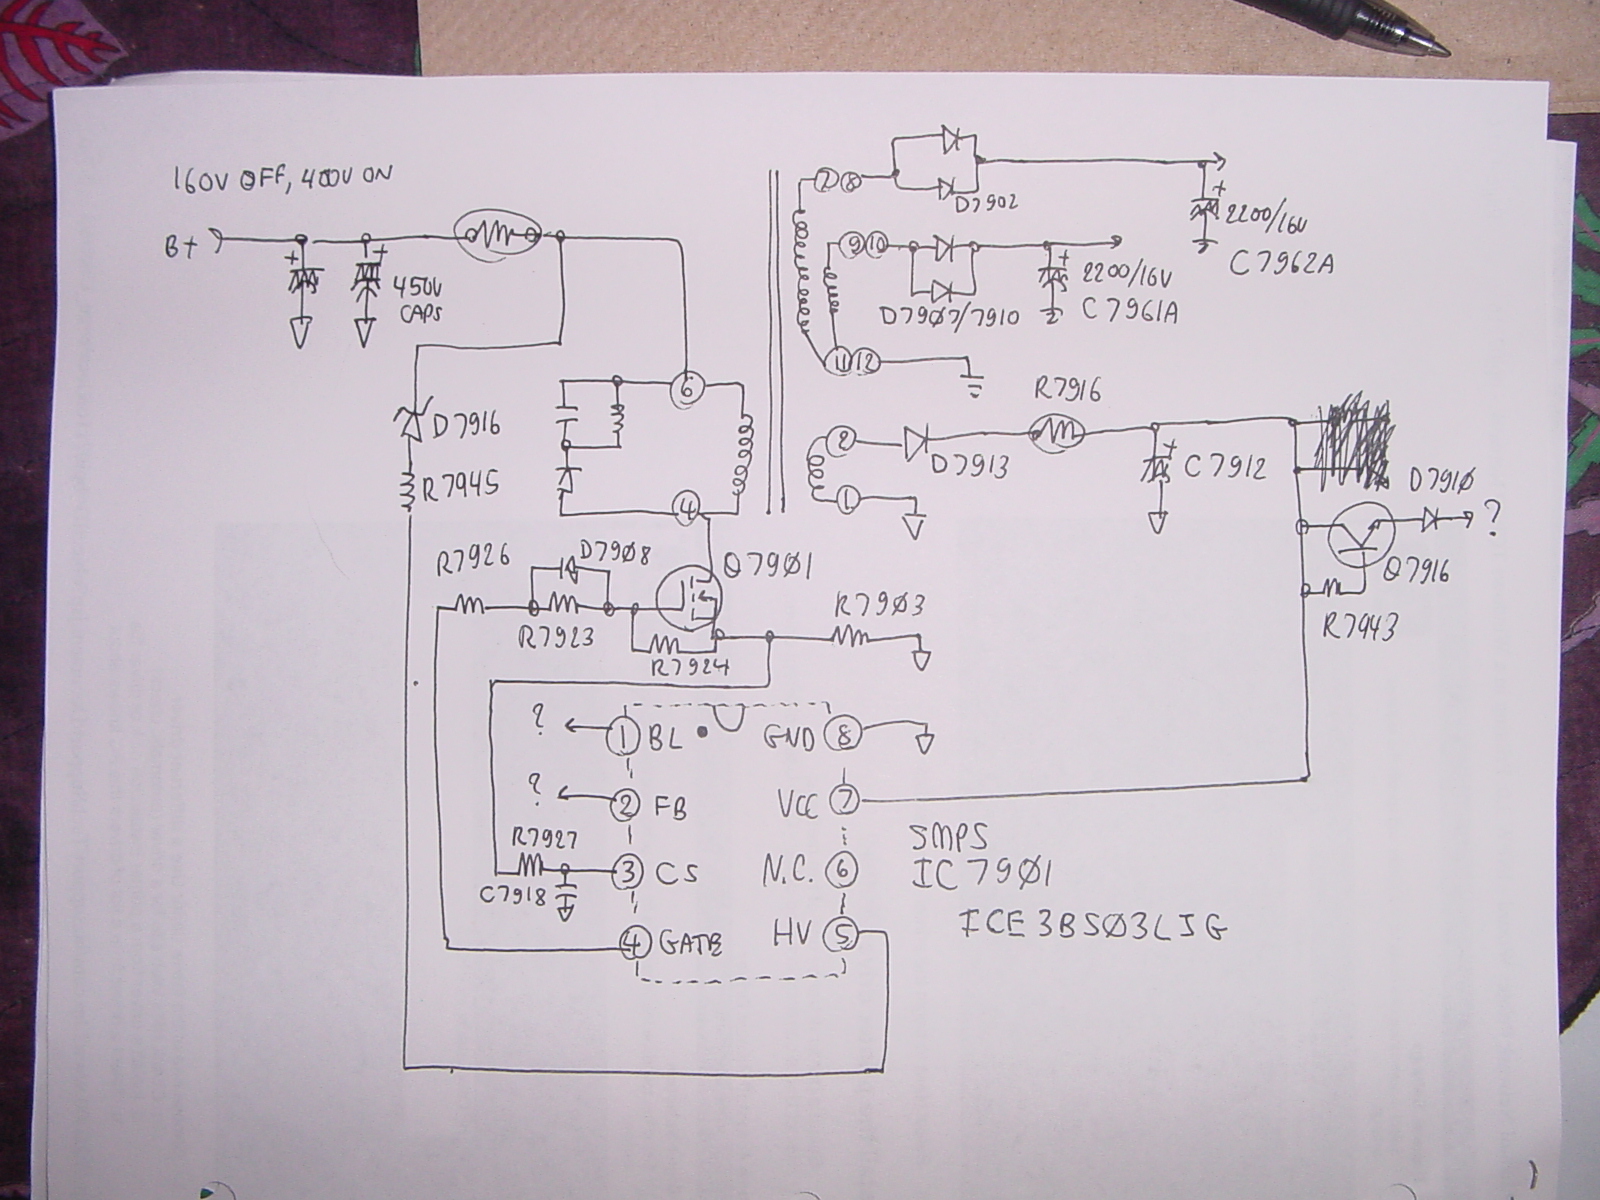 160V OFF, 400V ON
B+
+
+
450V
CAPS
7 8
D7902
+
2200/16V
C7962A
9 10
D7907/7910
+
2200/16V
C7961A
11 12
6
4
D7916
R7945
2
1
D7913
R7916
+
C7912
D7910
?
Q7916
R7943
R7926
D7908
R7923
Q7901
R7924
R7903
? 1 BL
GND 8
? 2 FB
VCC 7
R7927
C7918
3 CS
N.C. 6
4 GATE
HV 5
SMPS
IC7901
ICE3BS03LJG